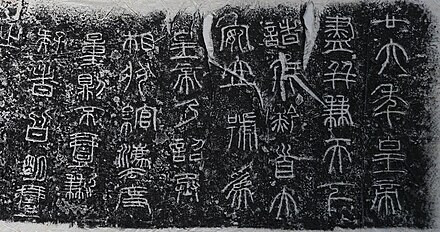 廿六年皇帝
盡并兼天下
諸侯黔首大
安立號爲
皇帝乃詔丞
相狀綰灋度
量則不壹歉
疑者皆明壹
之